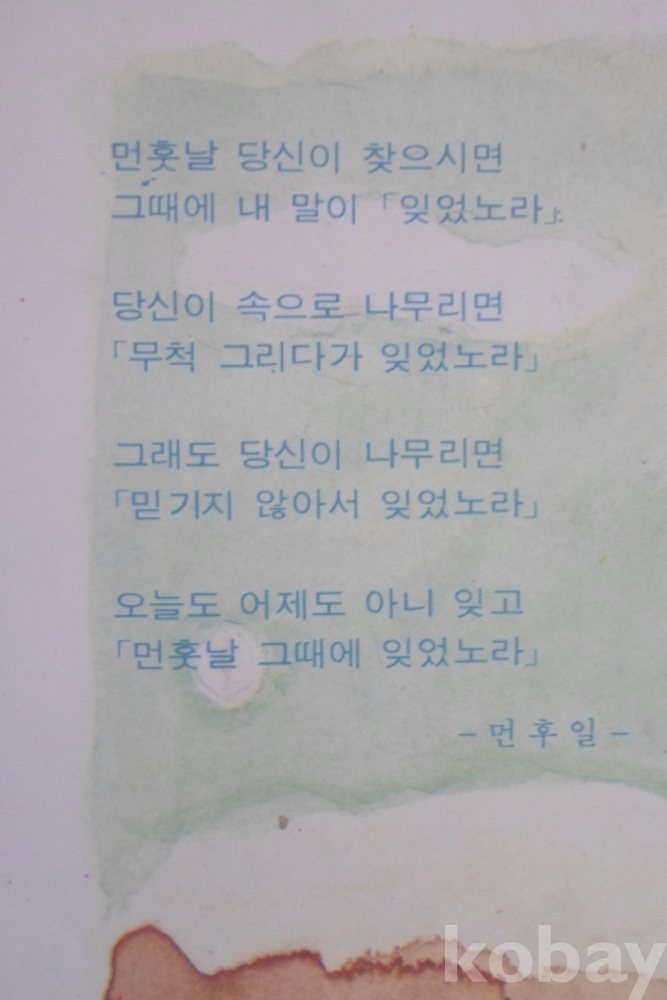 먼훗날 당신이 찾으시면
그때에 내 말이 「잊었노라」

당신이 속으로 나무리면
「무척 그리다가 잊었노라」

그래도 당신이 나무리면
「믿기지 않아서 잊었노라」

오늘도 어제도 아니 잊고
「먼훗날 그때에 잊었노라」

– 먼 후 일 –
kobay